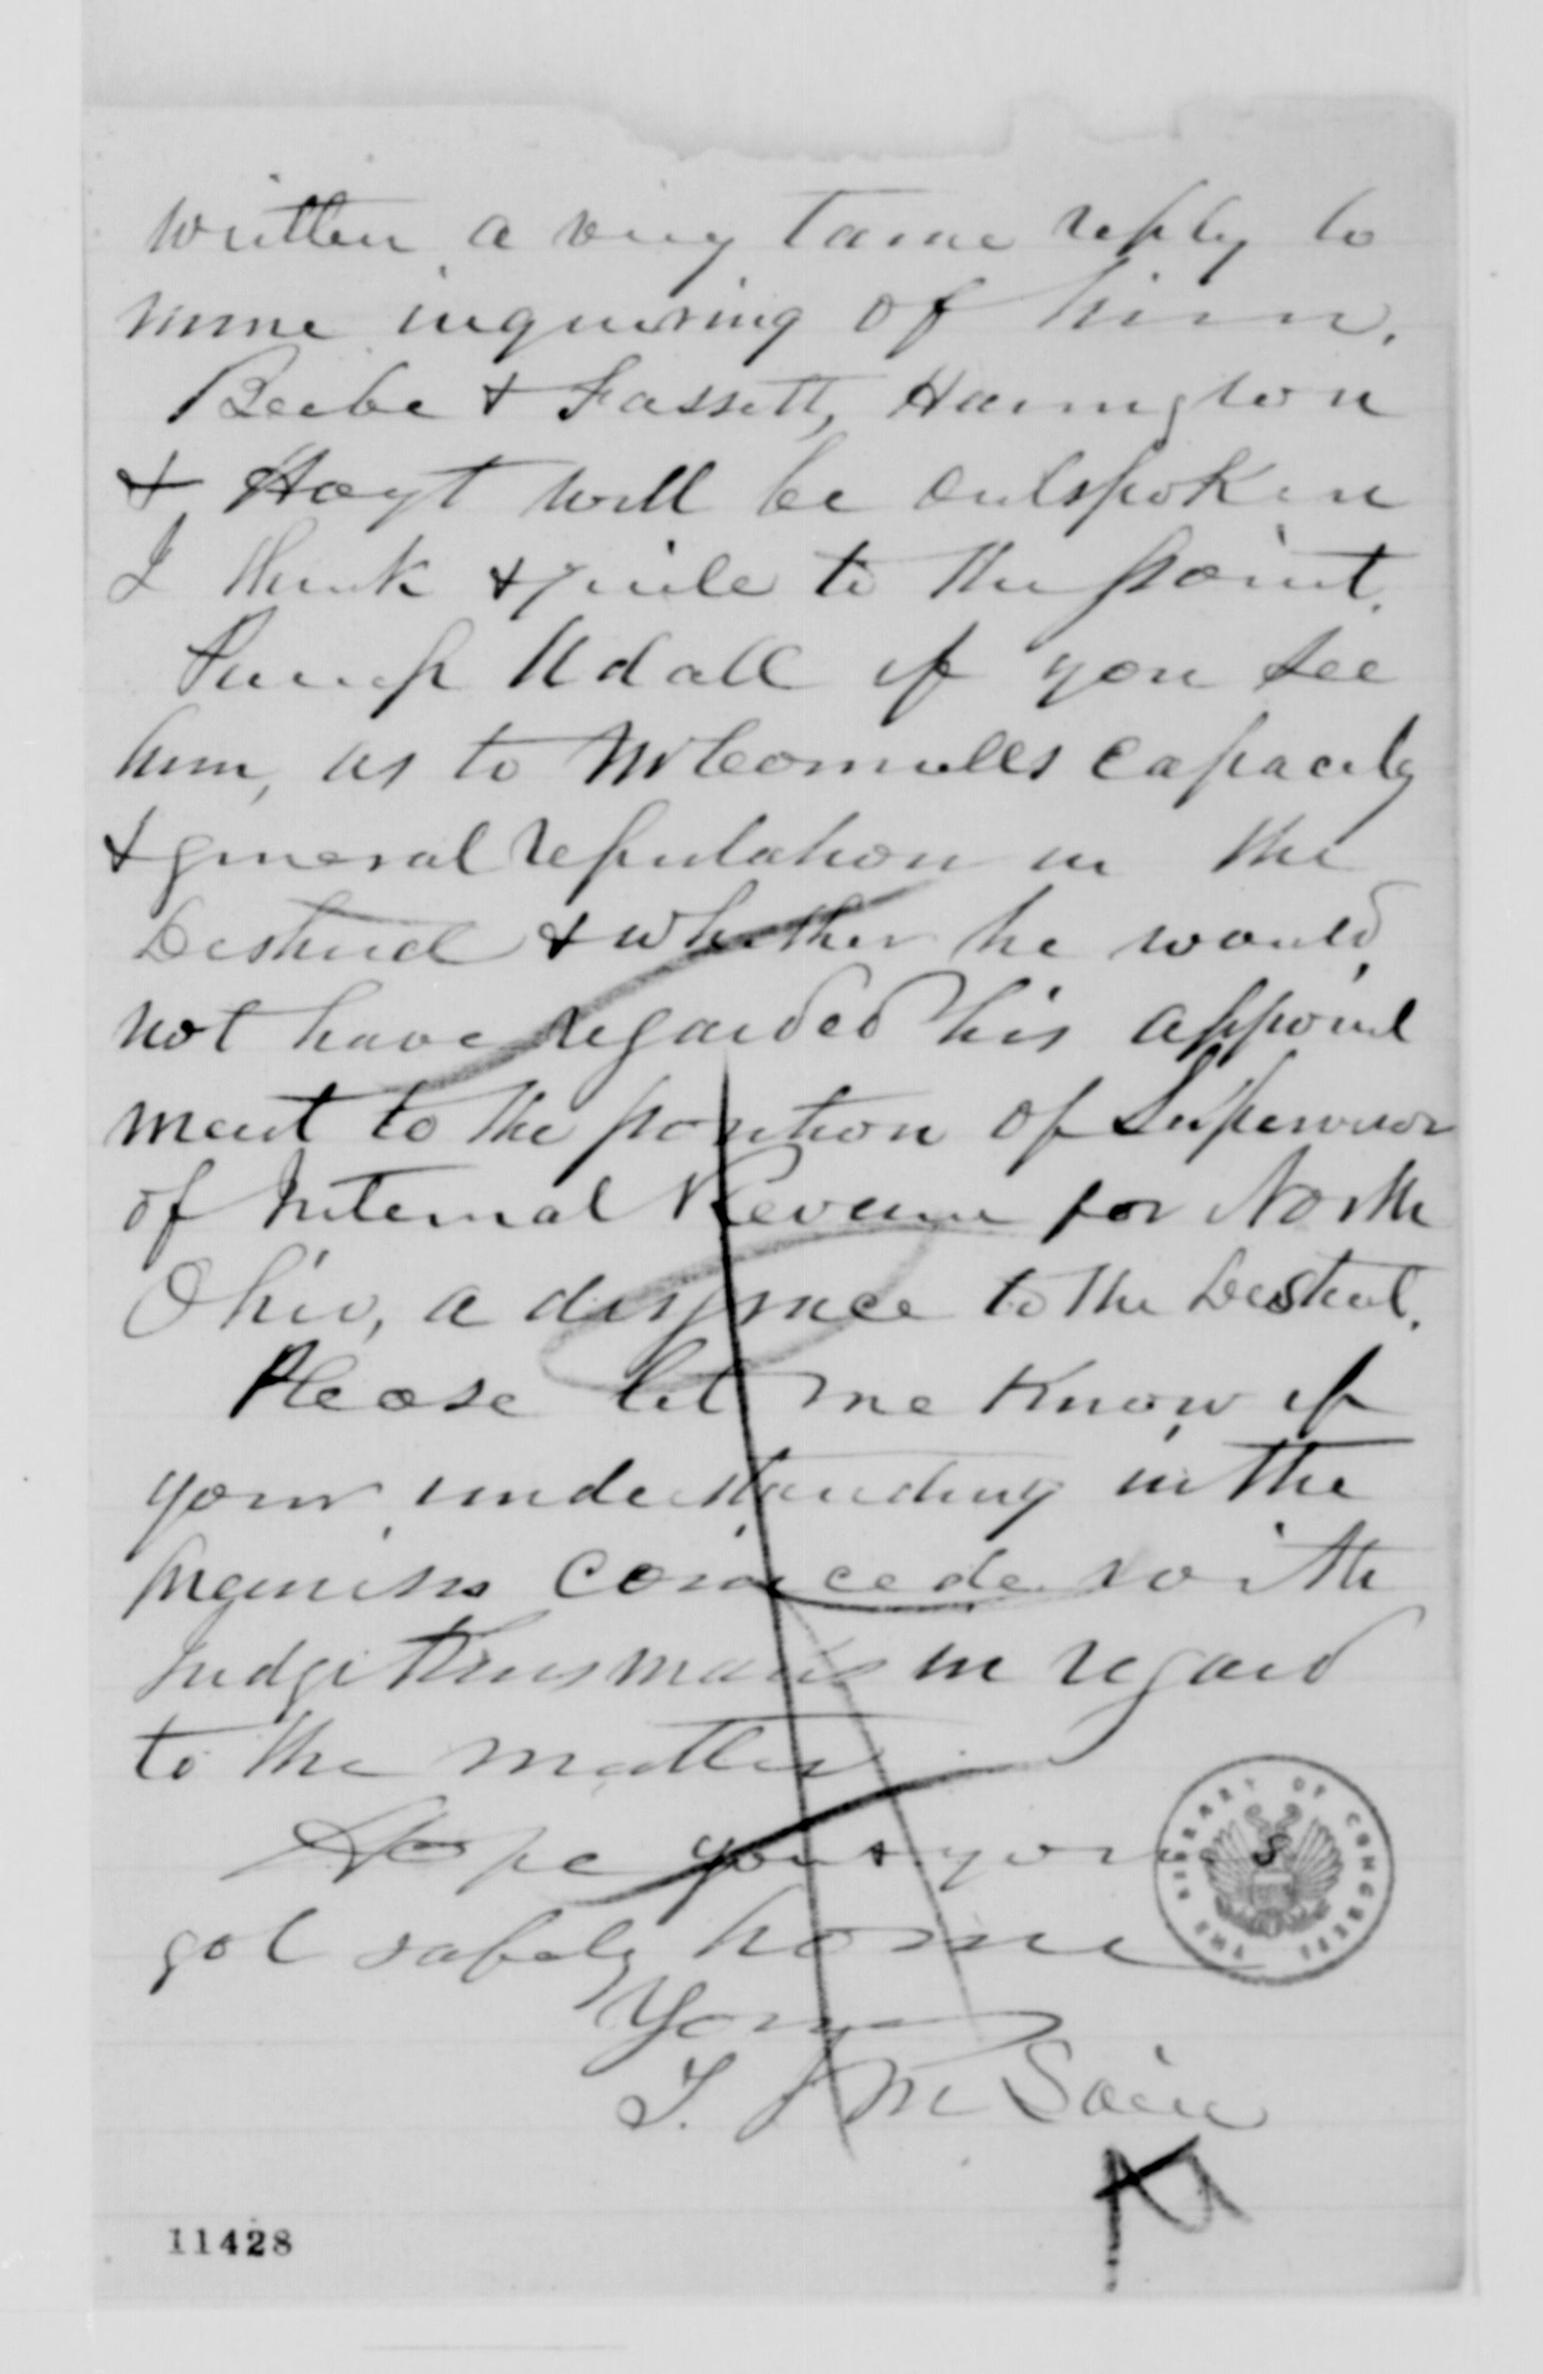 written a very tame reply to
mine inquiring of him.
Beebe & Fassett, Harrington
& Hoyt will be outspoken
I think & quite to the point.
Pump Udall if you see
him, as to McConnells capacity
& general reputation in the
District & whether he would
not have regarded his appoint
ment to the position of Supervisor
of Internal Revenue for North
Ohio, a disgrace to the District.
Please let me know if
your understanding in the
premises coincede with
Judge Kinsmans in regard
to the matter
Hope you & yours
got safely home
Yours
THE LIBRARY OF CONGRESS
S
11428